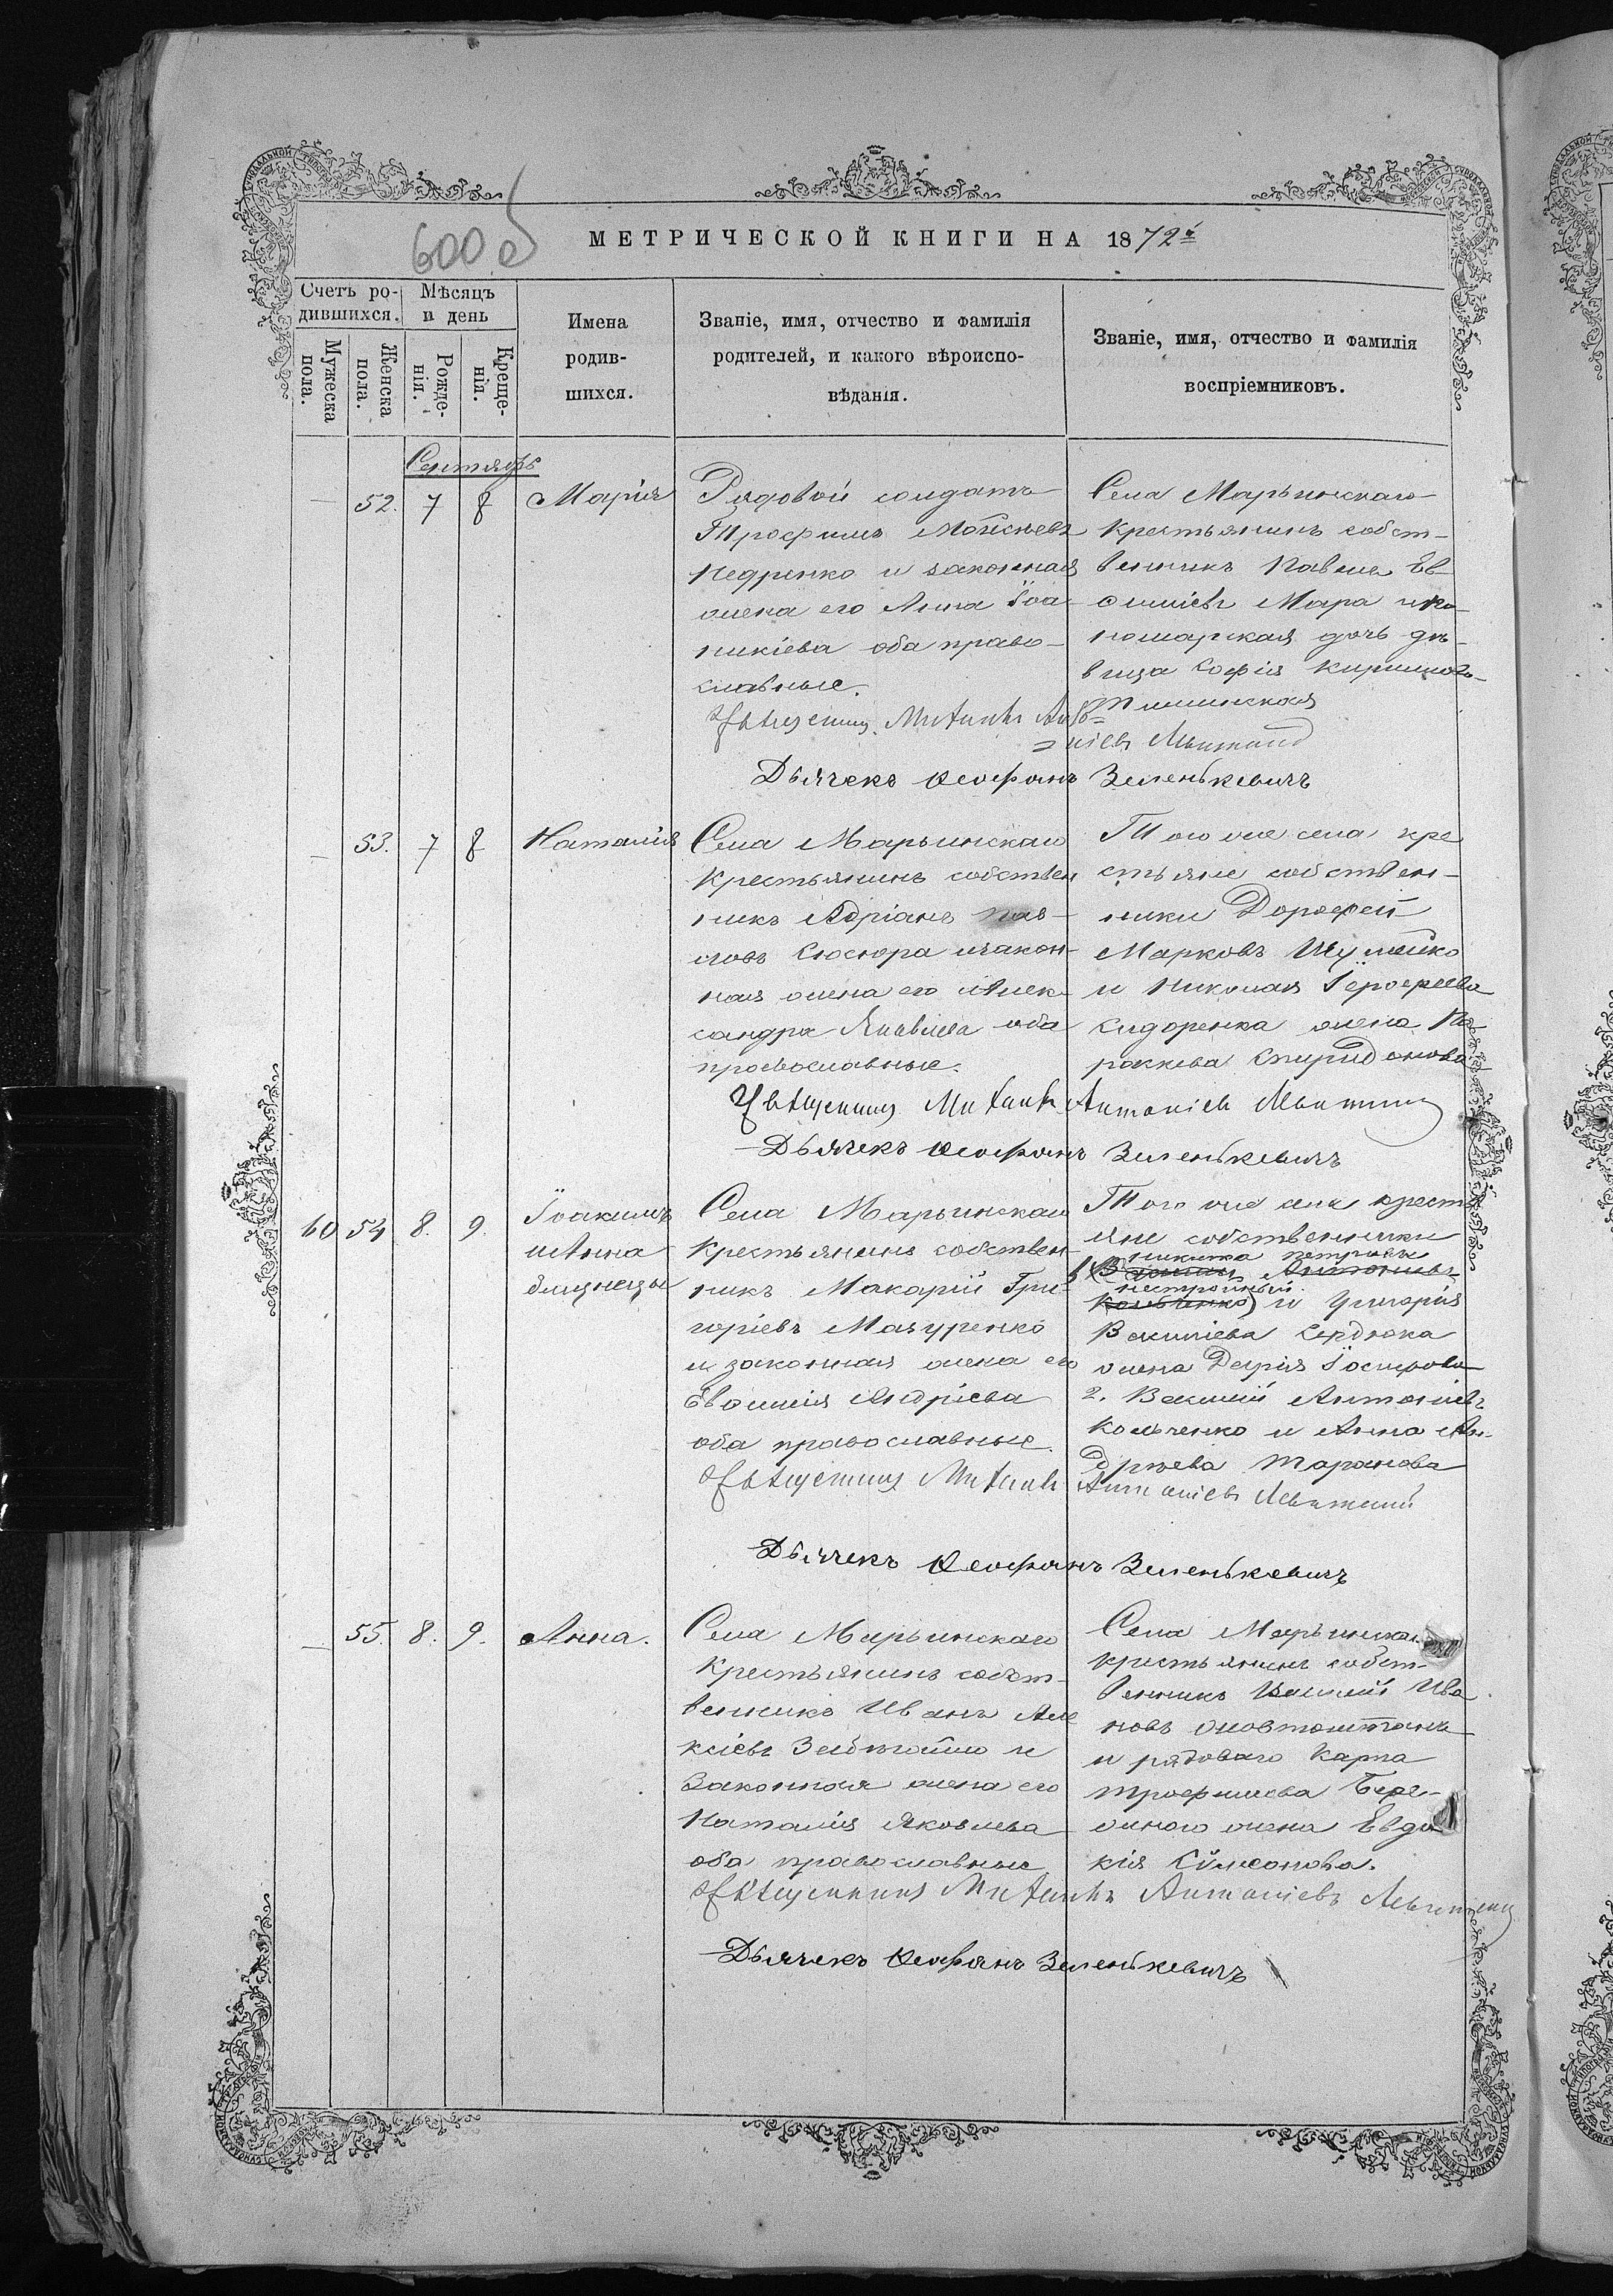 600 об
МЕТРИЧЕСКОЙ КНИГИ НА 1872й
Счетъ ро-
дившихся.
Мѣсяцъ
и день
Мужеска
пола.
Женска
пола.
Рожде-
нія.
Креще-
нія.
Имена
родив-
шихся.
Званіе, имя, отчество и фамилія
родителей, и какого вѣроиспо-
вѣданія.
Званіе, имя, отчество и фамилія
воспріемниковъ.
Сентябрь
— 52. 7 8 Марія
Рядовой солдатъ
Трофимъ Моѵсеевъ
Недренко и законная
жена его Анна Іоа-
никіева оба право-
славные.
Села Марьинскаго
крестьянинъ собст-
венникъ Павелъ Ев-
фиміевъ Мара и по-
номарская дочь дѣ-
вица Софія
Священникъ Михаилъ Анто-
ніевъ
Дьячекъ Ѳеофанъ Зеленькевичъ
— 53. 7 8 Наталія
Села Марьинскаго
крестьянинъ собствен
никъ Адріанъ Пав-
ловъ Сюсюра и закон-
ная жена его Алек-
сандра оба
православные.
Того же села кре
стьяне собствен-
ники Дорофей
Марковъ Шумейко
и Николая Іероѳеева
Сидоренка жена Па-
раскева Спиридонова
Священникъ Михаилъ Антоніевъ
Дьячекъ Ѳеофанъ Зеленькевичъ
40 54 8. 9.
Іоакимъ
и Анна
близнецы
Села Марьинскаго
крестьянинъ собствен-
никъ Макарій Гри-
горіевъ Мазуренко
и законная жена его
Евфимія Андріева
оба православные.
Того же села кресть
яне собственники
Никита Петровъ
1. (Василій Антоніевъ
Нестройный
Кольченко) и Григорія
Василіева Сердюка
жена Дарія Іосифова
2. Василій Антоніевъ
Кольченко и Анна Ан-
дріева Таранова
Священникъ Михаилъ Антоніевъ
Дьячекъ Ѳеофанъ Зеленькевичъ
— 55. 8. 9. Анна.
Села Марьинскаго
крестьянинъ собст-
венникъ Иванъ Але
ксіевъ и
законная жена его
Наталія Яковлева
оба православные
Села Марьинскаго
крестьянинъ собст-
венникъ Василій Ива
новъ
и рядоваго Карпа
Трофимова Бере-
жного жена Евдо
кія Сѵмеонова.
Священникъ Михаилъ Антоніевъ
Дьячекъ Ѳеофанъ Зеленькевичъ